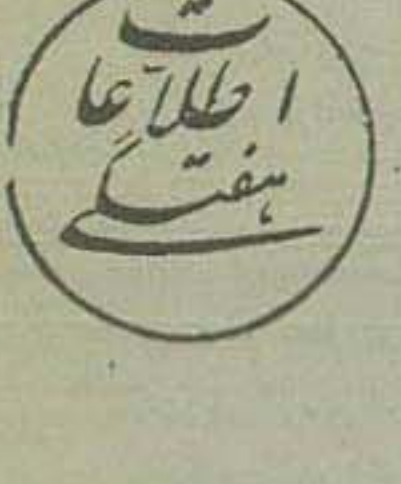 اطلاعات
هفتگی